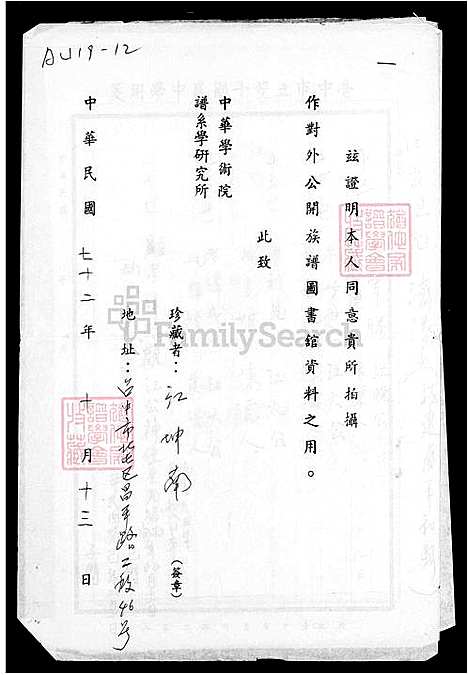 AU19-12
一
茲證明本人同意貴所拍攝
作對外公開族譜圖書館資料之用。
此致
中華學術院
譜系學研究所
珍藏者：江坤南（簽章）
地址：台中市北屯區昌平路二段46号
中華民國七十二年十月十三日
FamilySearch